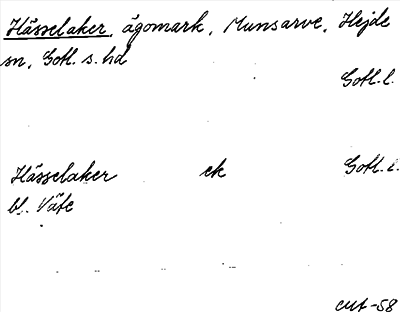 Hässelaker, ägomark, Munsarve, Hejde
sn, Gotl. s. hd
Gotl. l.
Hässelaker ek Gotl. l.
bl. Väte